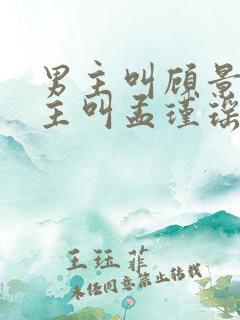 男主叫顾景
主叫孟瑾瑶
王珏菲
未经同意禁止转载